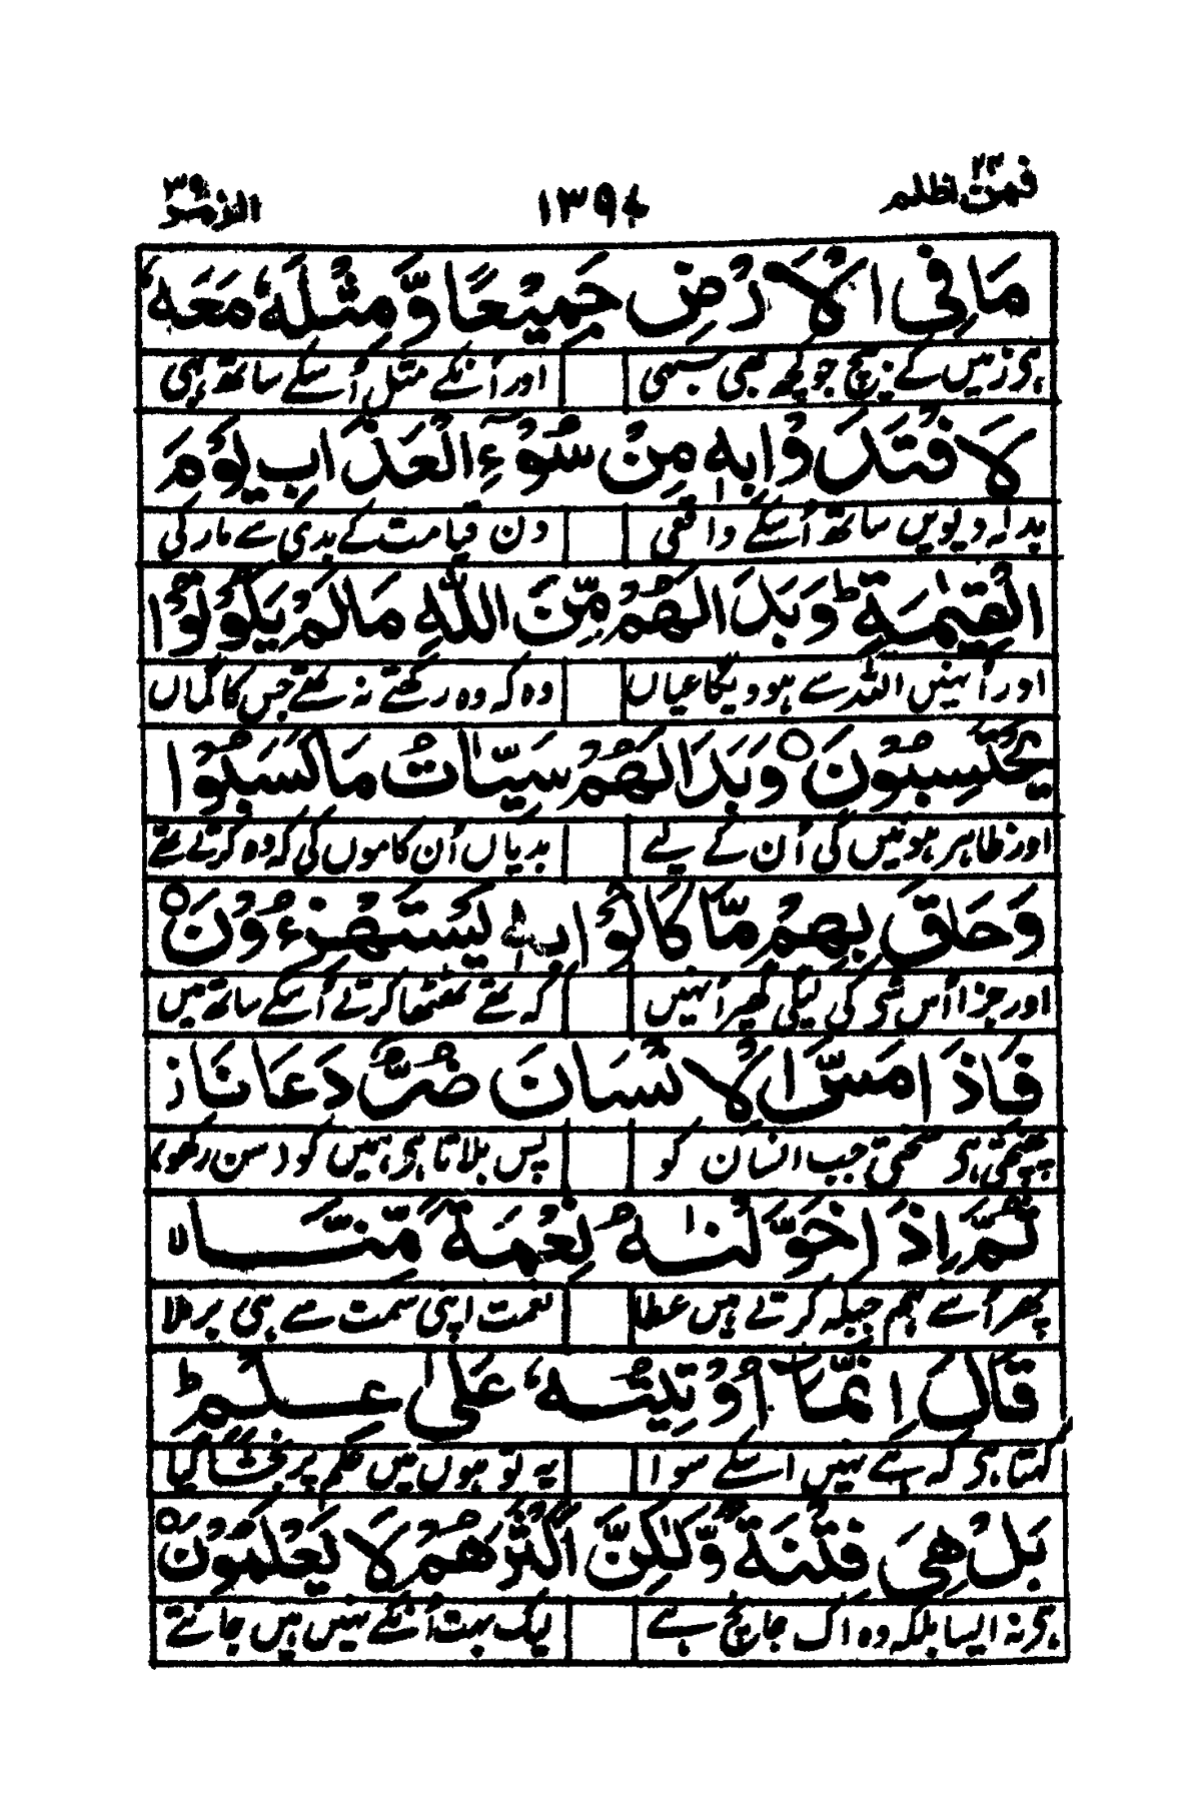 فمن اظلم ٢٤ ١٣٩٤ الزمر ٣٩
مَا فِی الْاَرْضِ جَمِیْعًا وَّمِثْلَهٗ مَعَهٗ
ہی زمیں کے بیچ جو کچھ بھی سبھی اور اُنکے مثل اُسکے ساتھ ہی
لَافْتَدَوْا بِهٖ مِنْ سُوْٓءِ الْعَذَابِ یَوْمَ
بدلہ دیویں ساتھ اُسکے واقعی دن قیامت کے بدی سے مار کی
الْقِیٰمَةِ ؕ وَبَدَا لَهُمْ مِّنَ اللّٰهِ مَا لَمْ یَكُوْنُوْا
اور اُنہیں اللہ سے ہوویگا عیاں وہ کہ وہ رکھتے نہ تھے جس کا گماں
یَحْتَسِبُوْنَ ○ وَبَدَا لَهُمْ سَیِّاٰتُ مَا كَسَبُوْا
اور ظاہر ہوئیں گی اُن کے لیے بدیاں اُن کاموں کی کہ وہ کرتے تھے
وَحَاقَ بِهِمْ مَّا كَانُوْا بِهٖ یَسْتَهْزِءُوْنَ ○
اور جزا اُس شی کی لیگی گھیر اُنہیں کہ تھے ٹھٹھا کرتے اُسکے ساتھ میں
فَاِذَا مَسَّ الْاِنْسَانَ ضُرٌّ دَعَانَا ز
پہنچتی ہی سختی جب انسان کو پس بلاتا ہی ہمیں کو (سن رکھو)
ثُمَّ اِذَا خَوَّلْنٰهُ نِعْمَةً مِّنَّا ۙ
پھر اُسے ہم جبکہ کرتے ہیں عطا نعمت اپنی سمت سے ہی برملا
قَالَ اِنَّمَاۤ اُوْتِیْتُهٗ عَلٰی عِلْمٍ ؕ
کہتا ہی کہ ہے نہیں اسکے سوا یہ تو ہوں میں علم پر بخشا گیا
بَلْ هِیَ فِتْنَةٌ وَّلٰكِنَّ اَكْثَرَهُمْ لَا یَعْلَمُوْنَ ○
ہی نہ ایسا بلکہ وہ اک جانچ ہے لیک بہت اُنکے نہیں ہیں جانتے